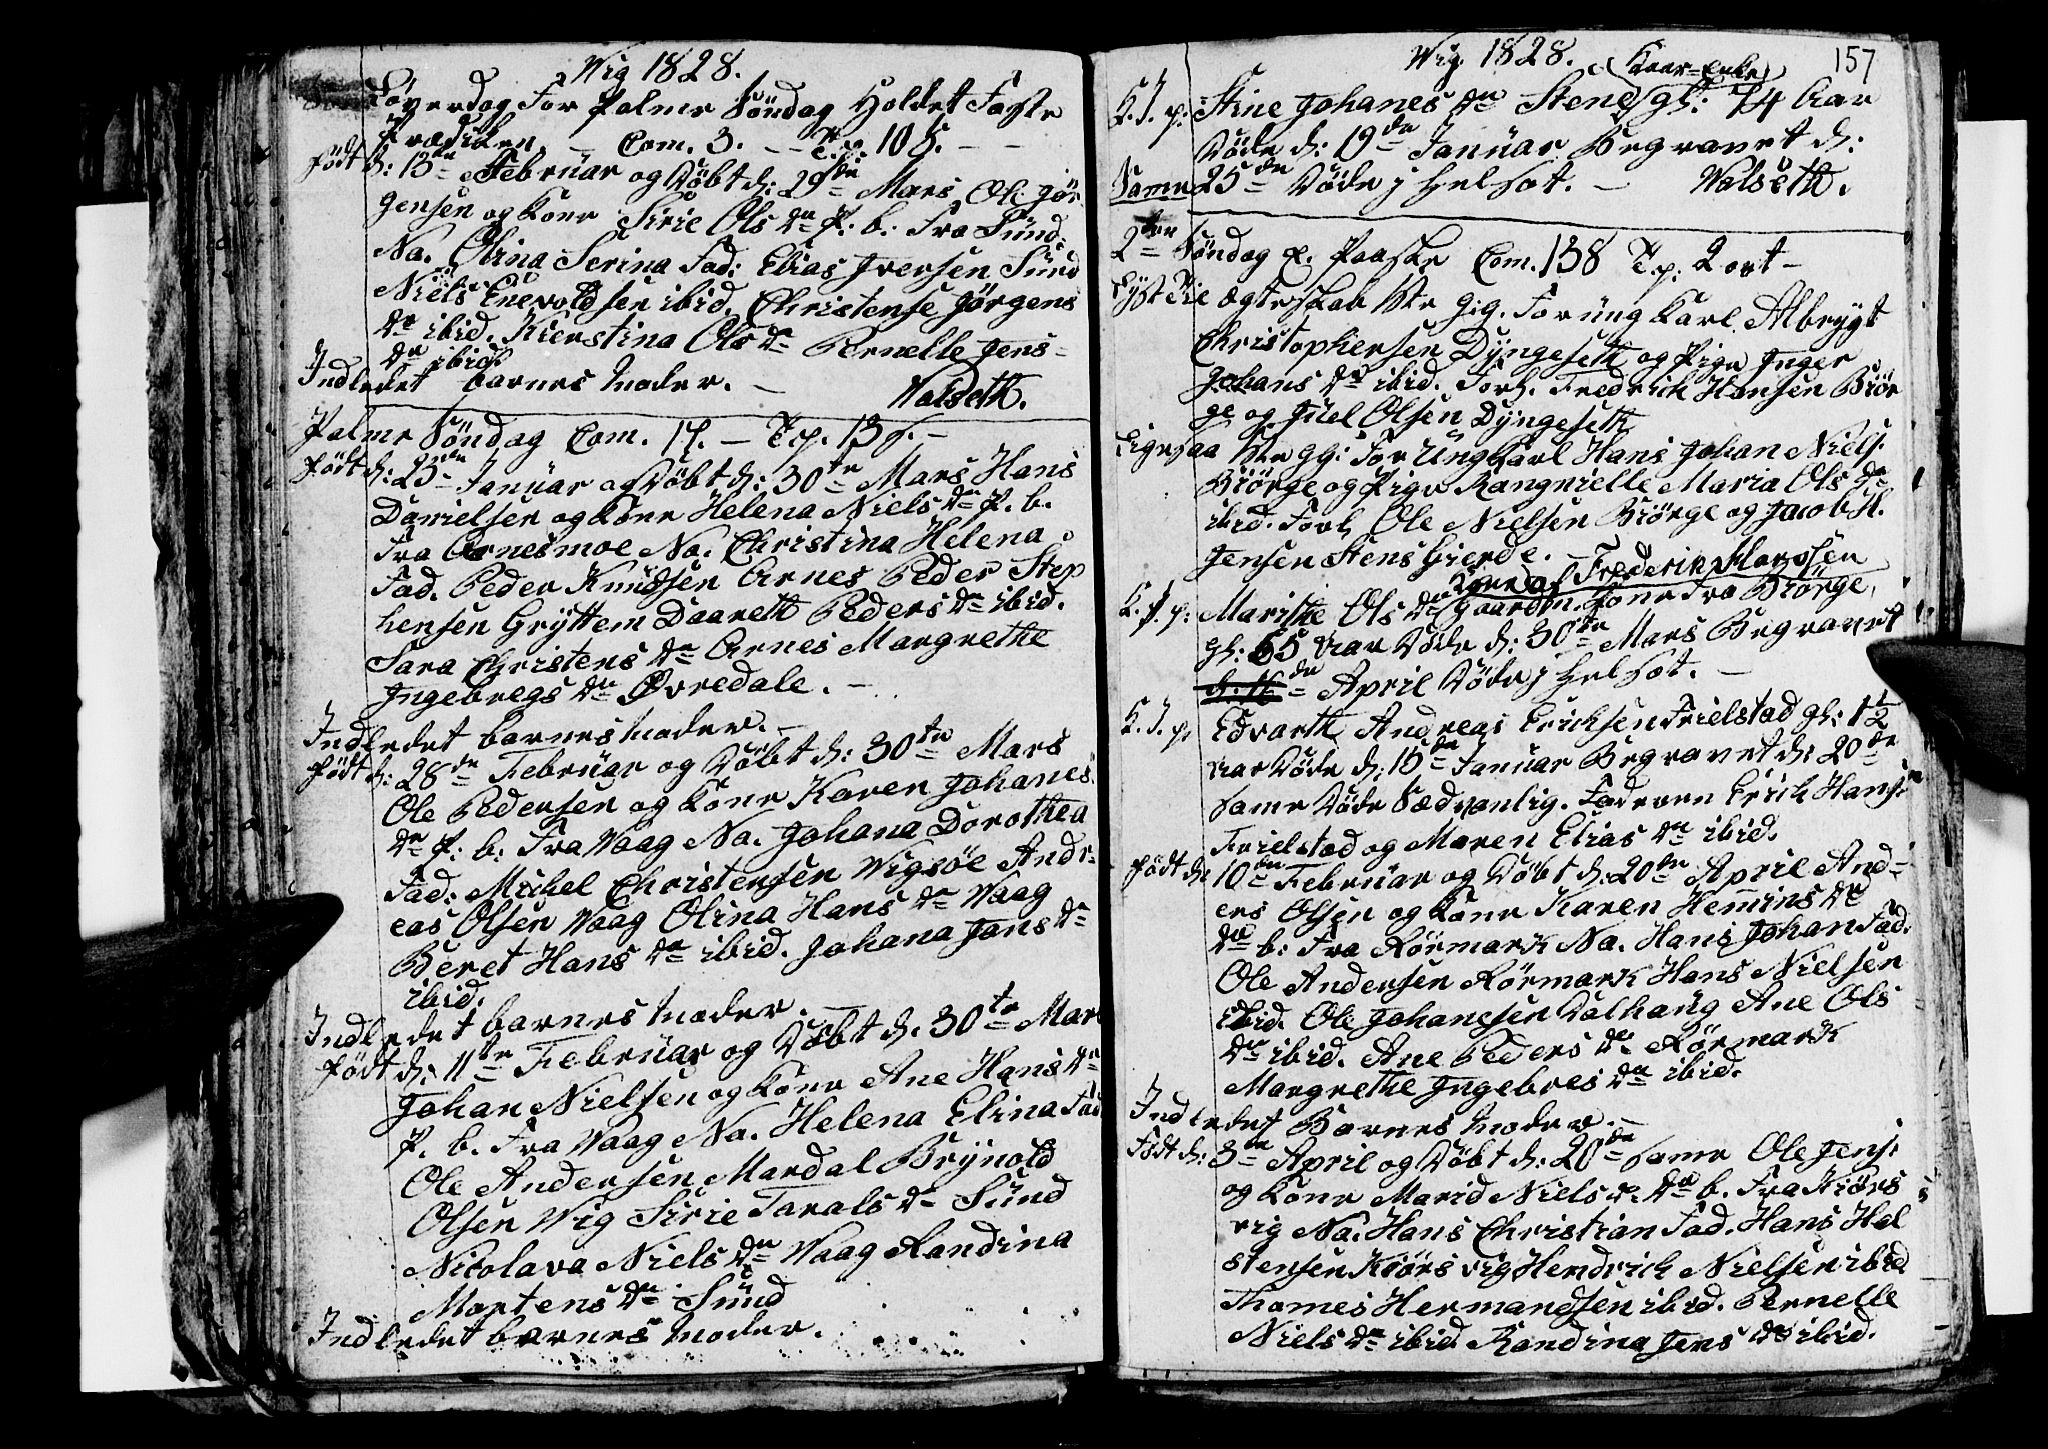 Wig 1828.
Löverdag For Palme Söndag Holdet Faste
Prædiken. — Com. 3. — T.p: 105. — —
født d: 13de Februar og Döbt d: 29de Mars Ole Jör
gensen og Kone Sirie Ols dr P. b. Fra Sund.
Na. Olina Serina Fad: Elias Iversen Sund
Niels Enevoldsen ibid. Christense Jörgens
dr ibid. Kierstina Ols dr Pernelle Jens-
dr ibid.
Indledet barnes Moder. — Walseth.
Palme Söndag Com. 17. — T.p. 13 s. —
født d: 23de Januar og Döbt d: 30te Mars Hans
Danielsen og Kone Helena Niels dr P. b.
Fra Arnesmoe Na. Christina Helena
Fad. Peder Knudsen Arnes Peder Step
hensen Gryttem Daareth Peders dr ibid.
Sara Christens dr Arnes Margrethe
Ingebregs dr Øvredale. —
Indledet barnes Moder. —
født d: 28de Februar og Döbt d: 30te Mars
Ole Pedersen og Kone Karen Johanes
dr P: b: Fra Vaag Na. Johana Dorothea
Fad: Mickel Christensen Wigsöe Andr-
eas Olsen Vaag Olina Hans dr Vaag
Beret Hans dr ibid. Johana Jans dr
ibid.
Indledet barnes Moder. —
født d: 11te Februar og Döbt d: 30te Mars
Johan Nielsen og Kone Ane Hans dr
P. b. Fra Vaag Na. Helena Elina Fad
Ole Andersen Mardal Brynold
Olsen Wig Sirie Tarals dr Sund
Nicolava Niels dr Vaag Randina
Mortens dr Sund
Indledet barnes Moder.
Wig 1828. 157
Kaar-Enke
K. J. p: Stine Johanes dr Stene gl: 74 Aar
Döde d: 19de Januar Begravet d:
25de Same Döde j Helsot. — Walseth.
2den Söndag e. Paaske Com. 138 T.p: 2 ort —
Lyst Tie Ægteskab 1ste gig. For ung Karl Albrygt
Christophersen Dyngeseth og Pige Inger
Johans dr ibid. Forl. Fredrich Hansen Biör
ge og Juel Olsen Dyngeseth
Ligesaa 1ste gg: For Ung Karl Hans Johan Niels:
Biörge og Pige Rangnielle Maria Ols dr
ibid. Forl. Ole Nielsen Biörge og Jacob H.
Jensen Stens Gierde. —
Frederik Morssen
K. J. p: Marithe Ols dr Gaardm. Kone Fra Biörge
gl: 65 Aar Döde d: 30te Mars Begravet
d: 16de April Döde j Helsot. —
K. J. p: Edvarth Andreas Ericksen Frielstad gl: 1 1/2
Aar Döde d: 15de Januar Begravet d: 20de
Same Döde Sædvanlig. Forældren Erick Hans:
Frielstad og Maren Elias dr ibid.
født d: 10de Februar og Döbt d: 20de April And-
ers Olsen og Kone Karen Hemins dr
b: Fra Rörmark Na. Hans Johan Fad.
Ole Andersen Rörmark Hans Nielsen
ibid. Ole Johanesen Dalhaug Ane Ols
dr ibid. Ane Peders dr Rörmark
Margrethe Ingebres dr ibid.
Indledet Barnes Moder. —
Födt d: 3de April og Döbt d: 20de Same Ole Jens:
og Kone Marid Niels dr b. Fra Kiörs
vig Na: Hans Christian Fad. Hans Hal
stensen Kiörsvig Hendrich Nielsen ibid
Thomes Hermandsen ibid. Pernelle
Niels dr ibid Randina Jens dr ibid.